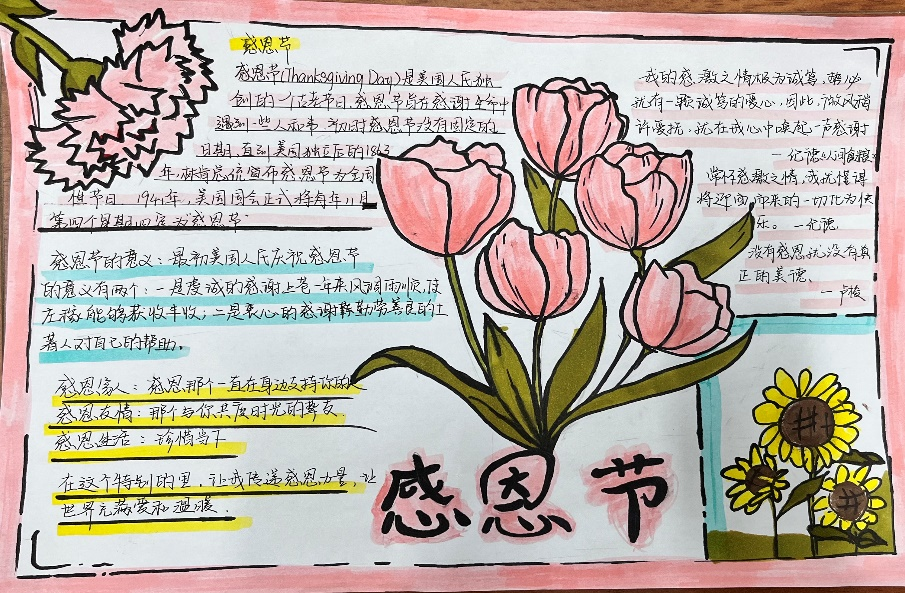 感恩节
感恩节(Thanksgiving Day)是美国人民独
创的一个古老节日,感恩节旨在感谢生命中
遇到一些人和事,初时感恩节没有固定的
日期,直到美国独立后的1863
年,林肯总统宣布感恩节为全国
性节日 1941年,美国国会正式将每年11月
第四个星期四定为感恩节
感恩节的意义:最初美国人民庆祝感恩节
的意义有两个:一是虔诚的感谢上苍一年来风调雨顺,使
庄稼能够获收丰收;二是衷心的感谢辣勤劳善良的土
著人对自己的帮助。
感恩家人:感恩那个一直在身边支持你的人
感恩友情:那个与你共度时光的挚友
感恩生活:珍惜当下
在这个特别的里,让我传递感恩力量,让
世界充满爱和温暖.
我的感激之情极为诚笃,
就有一颗诚笃的爱心,因此,微风稍
许爱抚,就在我心中唤起一声感谢
一纪德《人间食粮》
常怀感激之情,我就懂得
将迎面而来的一切化为快
乐。一纪德
没有感恩就没有真
正的美德.
一卢梭
感恩节